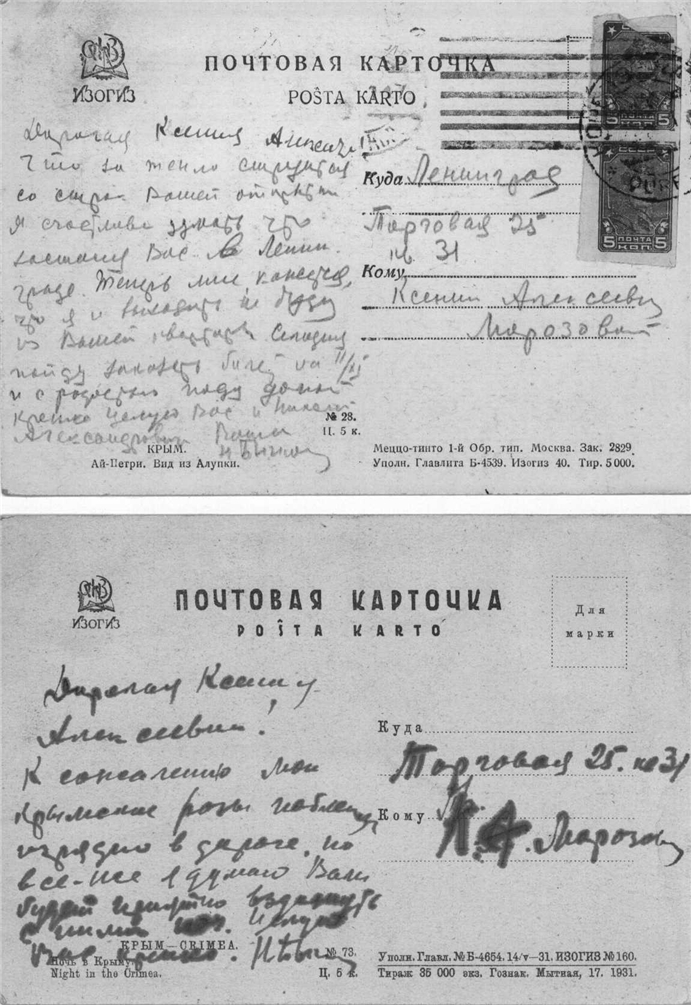 ИЗОГИЗ
ПОЧТОВАЯ КАРТОЧКА
POŜTA KARTO
Дорогая Ксения Алексеевна
Что за тепло струится
со стр. Вашей открытки
Я счастлива думать что
застану Вас в Ленин
граде. Теперь мне кажется,
что я и выходить не буду
из Вашей квартиры. Сегодня
пойду заказать билет на
и с радостью поеду домой
Крепко целую Вас и
Александровича Ваша
Куда Ленинград
Торговая 25
кв 31
Кому
Ксении Алексеевне
Морозовой
5 ПОЧТА КОП. 5
№ 28.
Ц. 5 к.
КРЫМ.
Ай-Петри. Вид из Алупки.
Меццо-тинто 1-й Обр. тип. Москва. Зак. 2829
Уполн. Главлита Б-4539. Изогиз 40. Тир. 5 000.
ИЗОГИЗ
ПОЧТОВАЯ КАРТОЧКА
POŜTA KARTO
Для
марки
Дорогая Ксения
Алексеевна!
К сожалению мои
крымские розы поблекли
изрядно в дороге, но
все-же я думаю Вам
будет приятно вздохнуть
с ними Целую
Вас крепко.
Куда
Торговая 25. кв 31
Кому
К. А. Морозовой
КРЫМ—CRIMEA.
Ночь в Крыму.
Night in the Crimea.
№ 73.
Ц. 5 к.
Уполн. Главл. № Б-4654. 14/v—31. ИЗОГИЗ № 160.
Тираж 35 000 экз. Гознак. Мытная, 17. 1931.